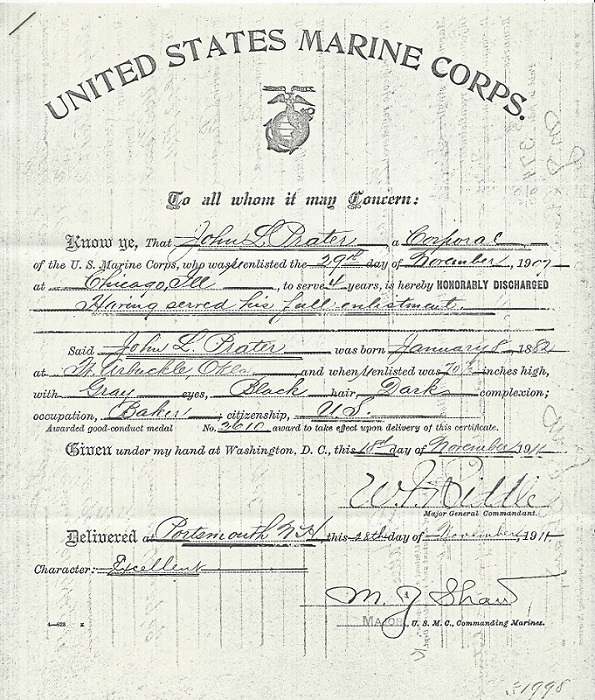 UNITED STATES MARINE CORPS.
To all whom it may Concern:
Know ye, That John L. Prater, a Corporal
of the U. S. Marine Corps, who was enlisted the 29th day of November, 1907
at Chicago, Ill, to serve 4 years, is hereby HONORABLY DISCHARGED
Having served his full enlistment.
Said John L. Prater was born January 8, 1882
at Ft. Arbuckle, Okla and when enlisted was 70 inches high,
with Gray eyes, Black hair, Dark complexion;
occupation, Baker; citizenship, U.S.
Awarded good-conduct medal No. 2610 award to take effect upon delivery of this certificate.
Given under my hand at Washington, D. C., this 18th day of November 1911
Major General Commandant.
Delivered at Portsmouth N.H. this 28th day of November, 1911
Character: Excellent
M. J. Shaw
MAJOR, U. S. M. C., Commanding Marines.
4—628
1998